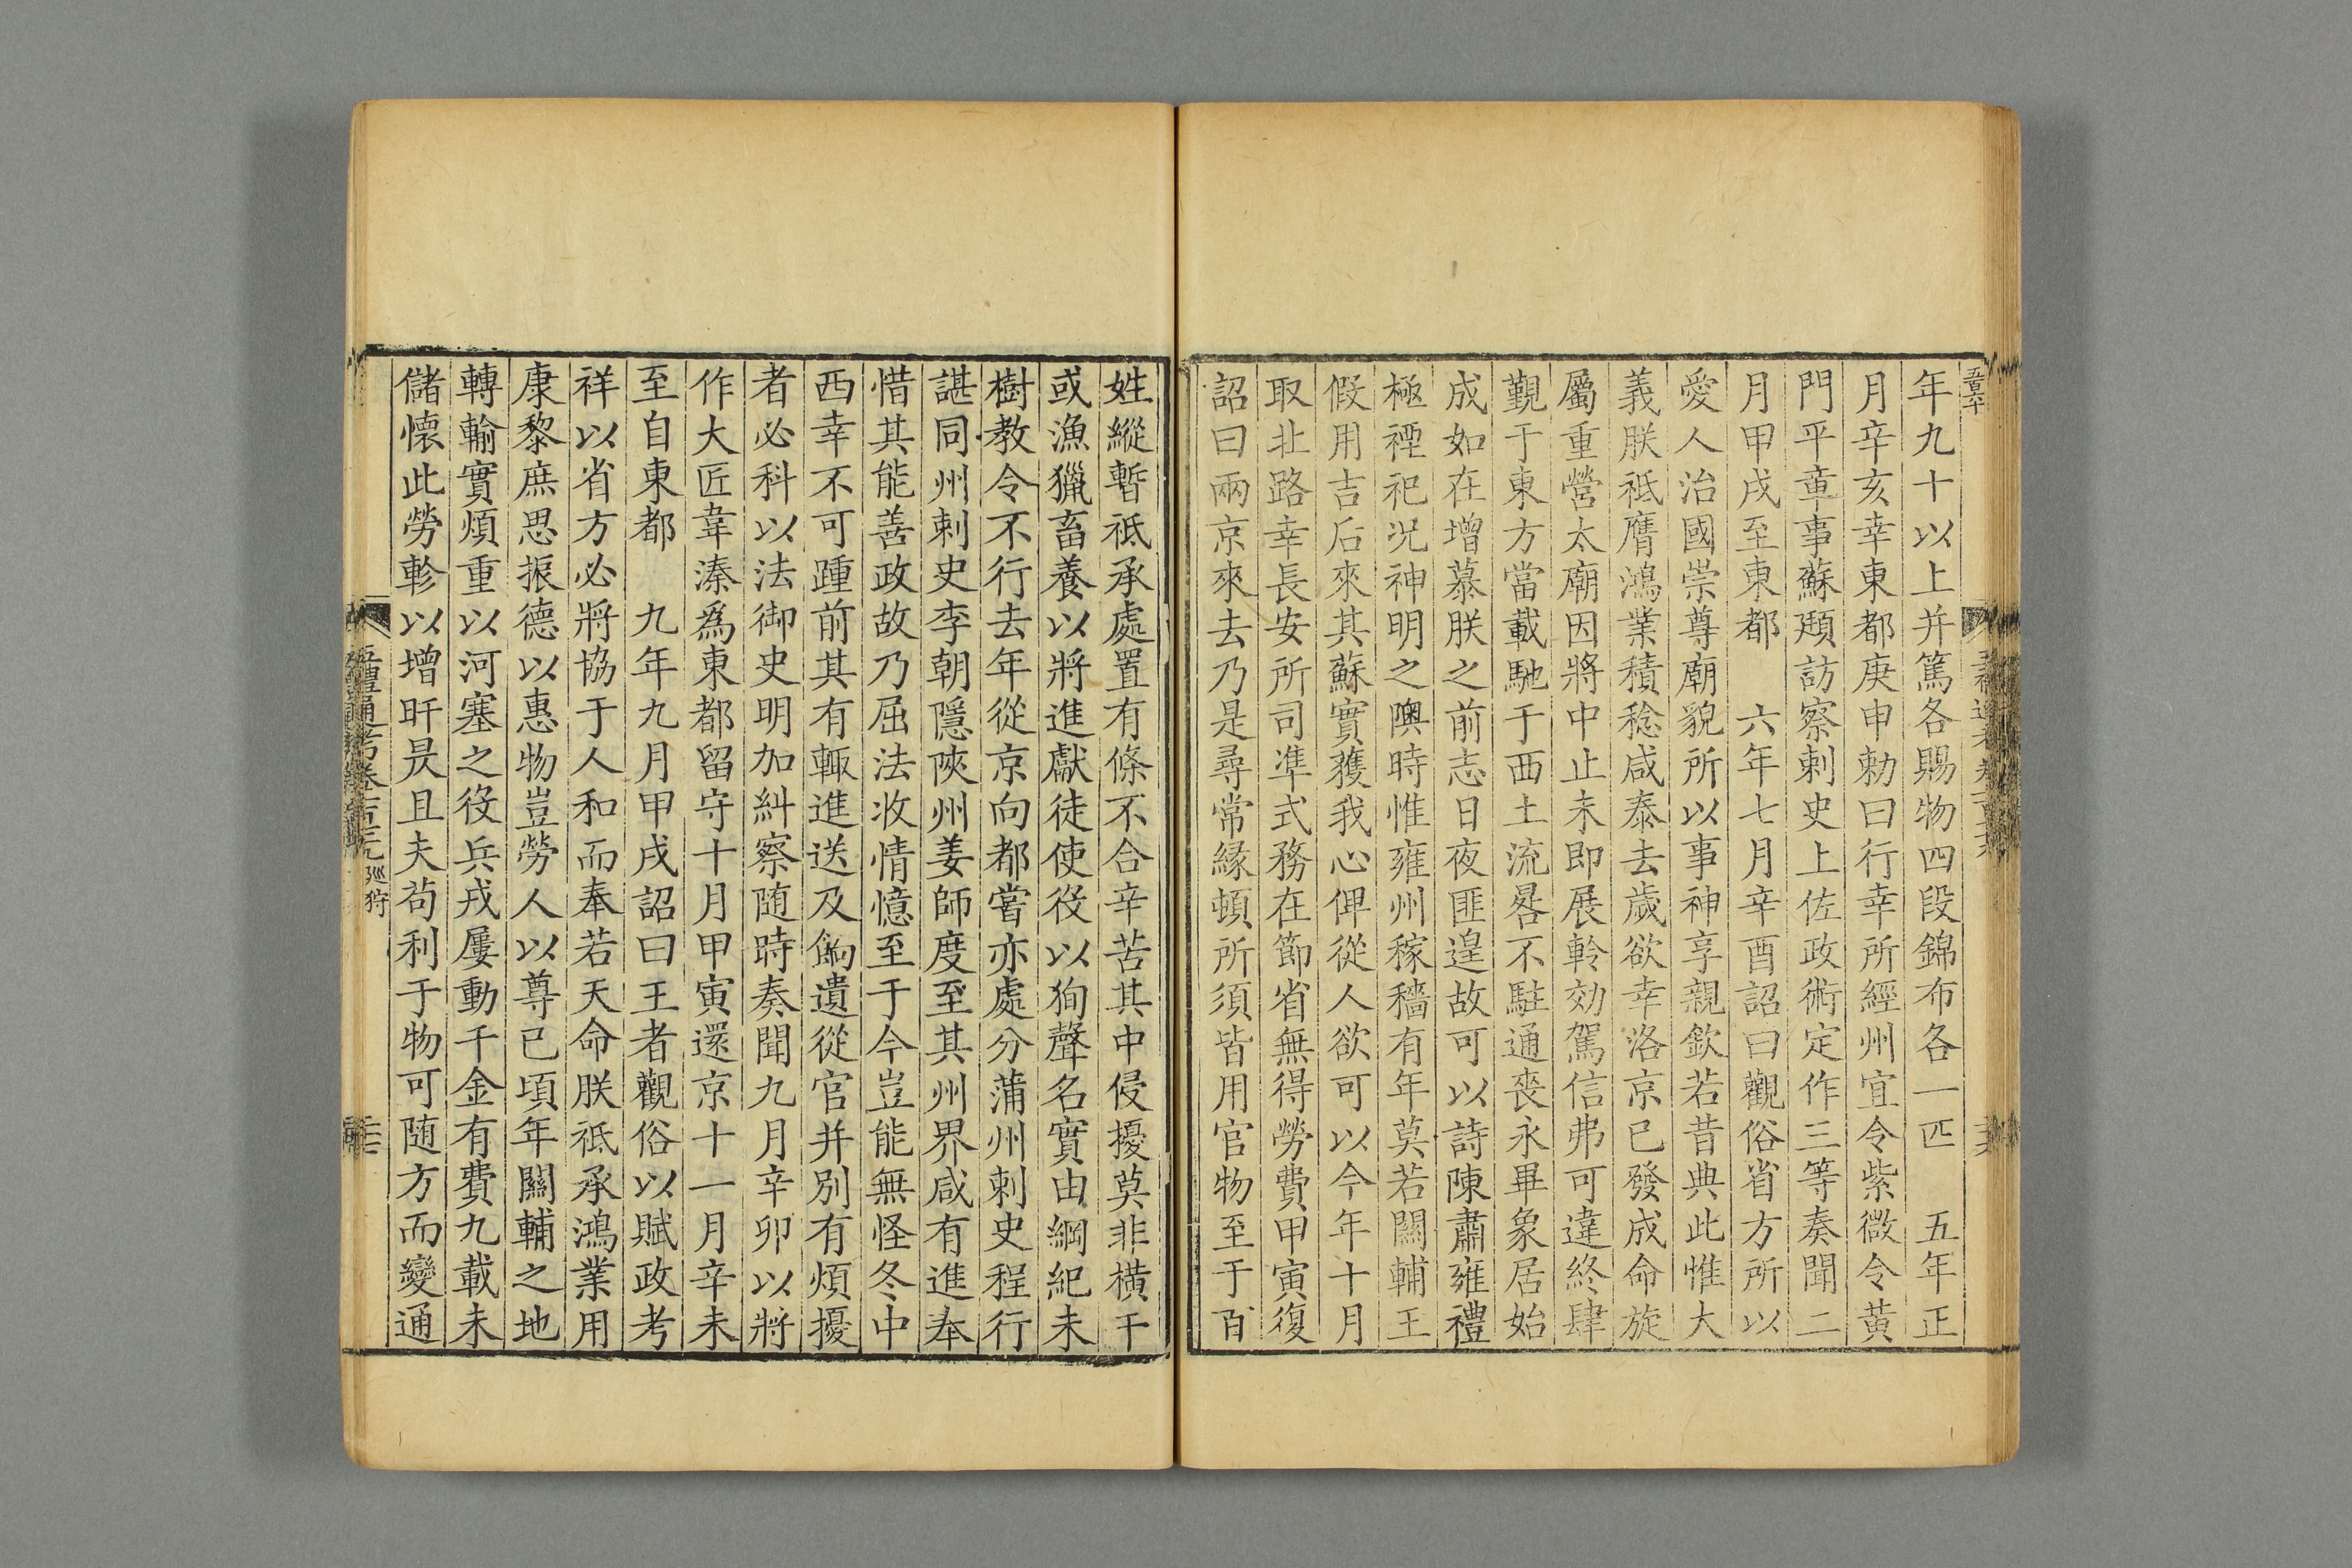 年九十以上并篤各賜物四段錦布各一匹　五年正
月辛亥幸東都庚申勅曰行幸所經州宜令紫微令黃
門平章事蘇頲訪察刺史上佐政術定作三等奏聞二
月甲戌至東都　六年七月辛酉詔曰觀俗省方所以
愛人治國崇尊廟貌所以事神享親欽若昔典此惟大
義朕祗膺鴻業積稔咸泰去歲欲幸洛京已發成命旋
屬重營太廟因將中止未即展軨効駕信弗可違終肆
覲于東方當載馳于西土流晷不駐通喪永畢象居始
成如在增慕朕之前志日夜匪遑故可以詩陳肅雍禮
極禋祀況神明之隩時惟雍州稼穡有年莫若關輔王
假用吉后來其蘇實獲我心俾從人欲可以今年十月
取北路幸長安所司準式務在節省無得勞費甲寅復
詔曰兩京來去乃是尋常緣頓所須皆用官物至于百
姓縱暫祗承處置有條不合辛苦其中侵擾莫非橫干
或漁獵畜養以將進獻徒使役以狥聲名實由綱紀未
樹教令不行去年從京向都嘗亦處分蒲州刺史程行
諶同州刺史李朝隱陝州姜師度至其州界咸有進奉
惜其能善政故乃屈法收情憶至于今豈能無怪冬中
西幸不可踵前其有輒進送及餉遺從官并別有煩擾
者必科以法御史明加糾察随時奏聞九月辛卯以將
作大匠韋湊爲東都留守十月甲寅還京十一月辛未
至自東都　九年九月甲戌詔曰王者觀俗以賦政考
祥以省方必將協于人和而奉若天命朕祗承鴻業用
康黎庶思振德以惠物豈勞人以尊已頃年關輔之地
轉輸實煩重以河塞之役兵戎屢動千金有費九載未
儲懷此勞軫以增旰昃且夫茍利于物可随方而變通
巡狩